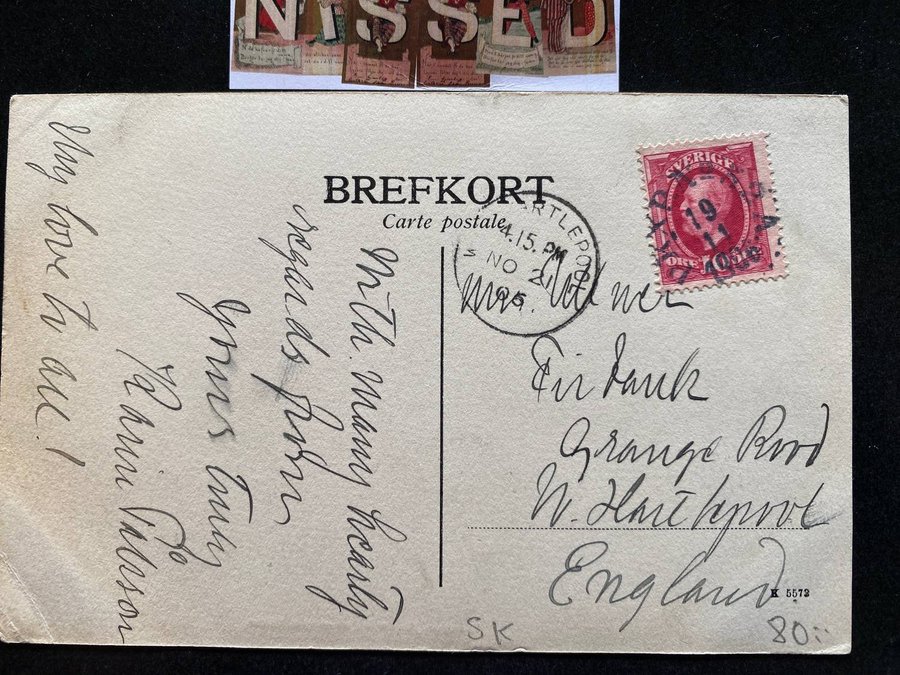 NISSED
BREFKORT
Carte postale
SVERIGE
19
11
ÖRE
HARTLEPOOL
4.15. PM
NO 21
With many hearty
regards from
Yours truly
My love to all!
Mrs. Milner
Fir bank
Grange Road
W. Hartlepool
England
K 5573
SK
80:-